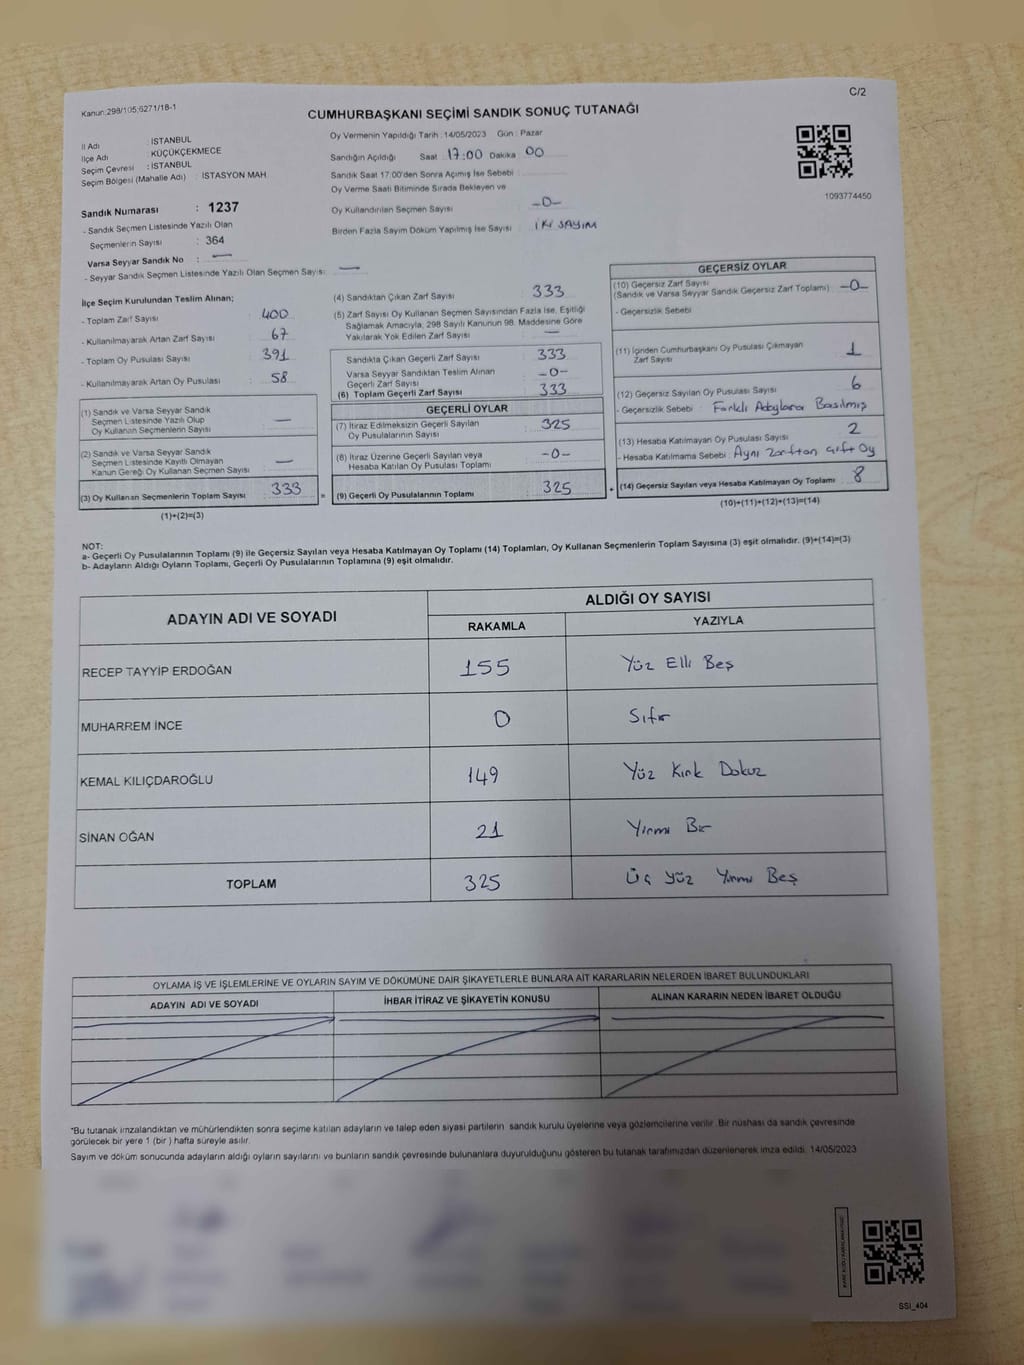 Kanun:298/105;6271/18-1
C/2
CUMHURBAŞKANI SEÇİMİ SANDIK SONUÇ TUTANAĞI
İl Adı : İSTANBUL
İlçe Adı : KÜÇÜKÇEKMECE
Seçim Çevresi : İSTANBUL
Seçim Bölgesi (Mahalle Adı) : İSTASYON MAH.
Sandık Numarası : 1237
- Sandık Seçmen Listesinde Yazılı Olan
Seçmenlerin Sayısı : 364
Varsa Seyyar Sandık No : —
- Seyyar Sandık Seçmen Listesinde Yazılı Olan Seçmen Sayısı : —
Oy Vermenin Yapıldığı Tarih : 14/05/2023 Gün : Pazar
Sandığın Açıldığı Saat 17:00 Dakika 00
Sandık Saat 17:00'den Sonra Açımış İse Sebebi
Oy Verme Saati Bitiminde Sırada Bekleyen ve
Oy Kullandırılan Seçmen Sayısı : -0-
Birden Fazla Sayım Döküm Yapılmış İse Sayısı : İKİ SAYIM
1093774450
İlçe Seçim Kurulundan Teslim Alınan;
- Toplam Zarf Sayısı : 400
- Kullanılmayarak Artan Zarf Sayısı : 67
- Toplam Oy Pusulası Sayısı : 391
- Kullanılmayarak Artan Oy Pusulası : 58
(1) Sandık ve Varsa Seyyar Sandık
Seçmen Listesinde Yazılı Olup
Oy Kullanan Seçmenlerin Sayısı —
(2) Sandık ve Varsa Seyyar Sandık
Seçmen Listesinde Kayıtlı Olmayan
Kanun Gereği Oy Kullanan Seçmen Sayısı —
(3) Oy Kullanan Seçmenlerin Toplam Sayısı 333 =
(1)+(2)=(3)
(4) Sandıktan Çıkan Zarf Sayısı : 333
(5) Zarf Sayısı Oy Kullanan Seçmen Sayısından Fazla İse, Eşitliği
Sağlamak Amacıyla, 298 Sayılı Kanunun 98. Maddesine Göre
Yakılarak Yok Edilen Zarf Sayısı : —
Sandıkta Çıkan Geçerli Zarf Sayısı : 333
Varsa Seyyar Sandıktan Teslim Alınan
Geçerli Zarf Sayısı : -0-
(6) Toplam Geçerli Zarf Sayısı : 333
GEÇERLİ OYLAR
(7) İtiraz Edilmeksizin Geçerli Sayılan
Oy Pusulalarının Sayısı : 325
(8) İtiraz Üzerine Geçerli Sayılan veya
Hesaba Katılan Oy Pusulası Toplamı : -0-
(9) Geçerli Oy Pusulalarının Toplamı : 325 +
GEÇERSİZ OYLAR
(10) Geçersiz Zarf Sayısı
(Sandık ve Varsa Seyyar Sandık Geçersiz Zarf Toplamı) : -0-
- Geçersizlik Sebebi :
(11) İçinden Cumhurbaşkanı Oy Pusulası Çıkmayan
Zarf Sayısı : 1
(12) Geçersiz Sayılan Oy Pusulası Sayısı : 6
- Geçersizlik Sebebi : Farklı Adaylara Basılmış
(13) Hesaba Katılmayan Oy Pusulası Sayısı : 2
- Hesaba Katılmama Sebebi : Aynı Zarftan Çift Oy
(14) Geçersiz Sayılan veya Hesaba Katılmayan Oy Toplamı : 8
(10)+(11)+(12)+(13)=(14)
NOT:
a- Geçerli Oy Pusulalarının Toplamı (9) ile Geçersiz Sayılan veya Hesaba Katılmayan Oy Toplamı (14) Toplamları, Oy Kullanan Seçmenlerin Toplam Sayısına (3) eşit olmalıdır. (9)+(14)=(3)
b- Adayların Aldığı Oyların Toplamı, Geçerli Oy Pusulalarının Toplamına (9) eşit olmalıdır.
ADAYIN ADI VE SOYADI
ALDIĞI OY SAYISI
RAKAMLA YAZIYLA
RECEP TAYYİP ERDOĞAN 155 Yüz Elli Beş
MUHARREM İNCE 0 Sıfır
KEMAL KILIÇDAROĞLU 149 Yüz Kırk Dokuz
SİNAN OĞAN 21 Yirmi Bir
TOPLAM 325 Üç Yüz Yirmi Beş
OYLAMA İŞ VE İŞLEMLERİNE VE OYLARIN SAYIM VE DÖKÜMÜNE DAİR ŞİKAYETLERLE BUNLARA AİT KARARLARIN NELERDEN İBARET BULUNDUKLARI
ADAYIN ADI VE SOYADI İHBAR İTİRAZ VE ŞİKAYETİN KONUSU ALINAN KARARIN NEDEN İBARET OLDUĞU
*Bu tutanak imzalandıktan ve mühürlendikten sonra seçime katılan adayların ve talep eden siyasi partilerin sandık kurulu üyelerine veya gözlemcilerine verilir. Bir nüshası da sandık çevresinde
görülecek bir yere 1 (bir ) hafta süreyle asılır.
Sayım ve döküm sonucunda adayların aldığı oyların sayılarını ve bunların sandık çevresinde bulunanlara duyurulduğunu gösteren bu tutanak tarafımızdan düzenlenerek imza edildi. 14/05/2023
SSI_404